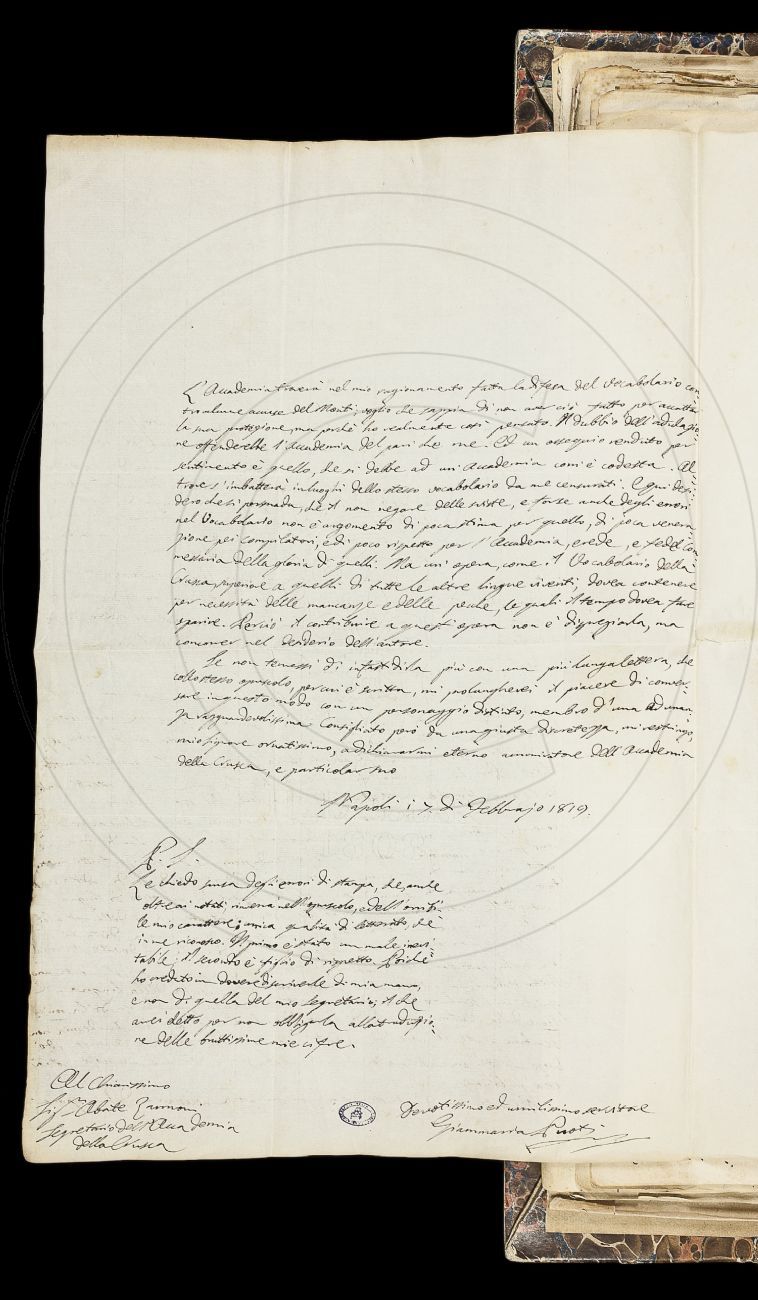 L'Accademia troverà nel mio ragionamento fatta la difesa del Vocabolario con
tro alcune accuse del Monti; voglio che sappia di non aver ciò fatto per accattar
la sua protezione, ma perchè ho realmente così pensato. Il dubbio dell'adulazio
ne offenderebbe l'Accademia del pari che me. Ed un ossequio renduto per
sentimento è quello, che si debbe ad un'Accademia com'è codesta. Al
trove s'imbatterà in luoghi dello stesso vocabolario da me censurati. E qui desi
dero che si persuada, che il non negare delle sviste, e forse anche degli errori
nel Vocabolario non è argomento di poca stima per quello, di poca venera
zione pei compilatori, e di poco rispetto per l'Accademia, erede, e fedel com
messaria della gloria di quelli. Ma un'opera, come il Vocabolario della
Crusca, superiore a quelli di tutte le altre lingue viventi, dovea contenere
per necessità delle mancanze e delle pecche, le quali il tempo dovea fare
sparire. Perciò il contribuire a quest'opera non è dispregiarla, ma
concorrer nel desiderio dell'autore.
Se non temessi di infastidirla più con una più lunga lettera, che
collo stesso opuscolo, per cui è scritta, mi prolungherei il piacere di conver
sare in questo modo con un personaggio distinto, membro d'una adunan
za ragguardevolissima. Consigliato però da una giusta discretezza, mi restringo,
mio signore ornatissimo, a dichiararmi eterno ammiratore dell'Accademia
della Crusca, e particolar suo
Napoli i 7. di Febbrajo 1819.
P. S.
Le chiedo scusa degli errori di stampa, che, anche
oltre ai notati, rinverrà nell'opuscolo, e dell'orribi
le mio carattere; unica qualità di letterato, che
in me riconosco. Il primo è stato un male inevi
tabile; il secondo è figlio di rispetto. Poichè
ho creduto in dovere di scriverle di mia mano,
e non di quella del mio Segretario; il che
avrei detto per non obbligarla alla traduzio
ne delle bruttissime mie cifre.
Al Chiarissimo
Sig.r Abate Zannoni
Segretario dell'Accademia
della Crusca
Devotissimo ed umilissimo servitore
Giammaria Puoti